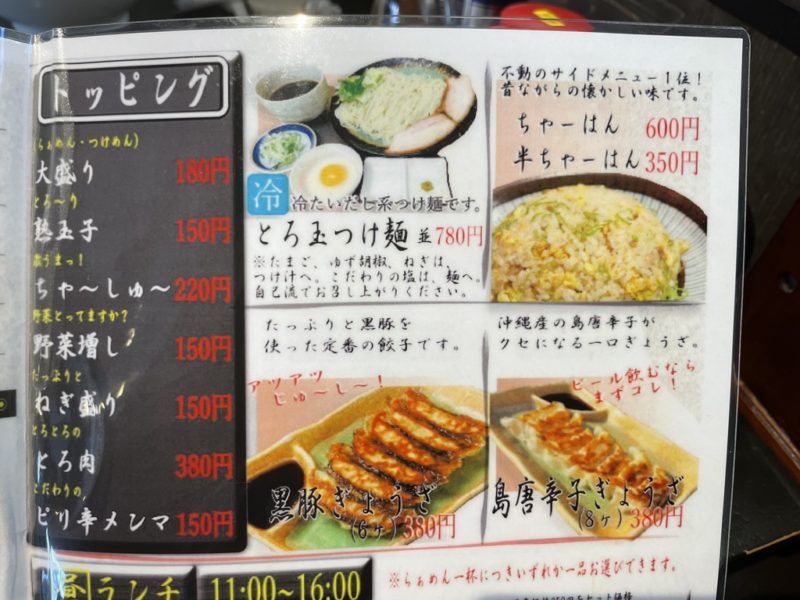 トッピング
(らぁめん・つけめん)
大盛り 180円
とろ～り
熟玉子 150円
激うまっ!
ちゃ～しゅ～ 220円
野菜とってますか?
野菜増し 150円
たっぷりと
ねぎ盛り 150円
とろとろの
とろ肉 380円
こだわりの
ピリ辛メンマ 150円
冷 冷たいだし系つけ麺です。
とろ玉つけ麺 並780円
※たまご、ゆず胡椒、ねぎは、
つけ汁へ。こだわりの塩は、麺へ。
自己流でお召し上がりください。
不動のサイドメニュー1位!
昔ながらの懐かしい味です。
ちゃーはん 600円
半ちゃーはん 350円
たっぷりと黒豚を
使った定番の餃子です。
アツアツ
じゅ～し～!
黒豚ぎょうざ
(6ヶ) 380円
沖縄産の島唐辛子が
クセになる一口ぎょうざ。
ビール飲むなら
まずコレ!
島唐辛子ぎょうざ
(8ヶ) 380円
昼ランチ 11:00~16:00
※らぁめん一杯につきいずれか一品お選びできます。